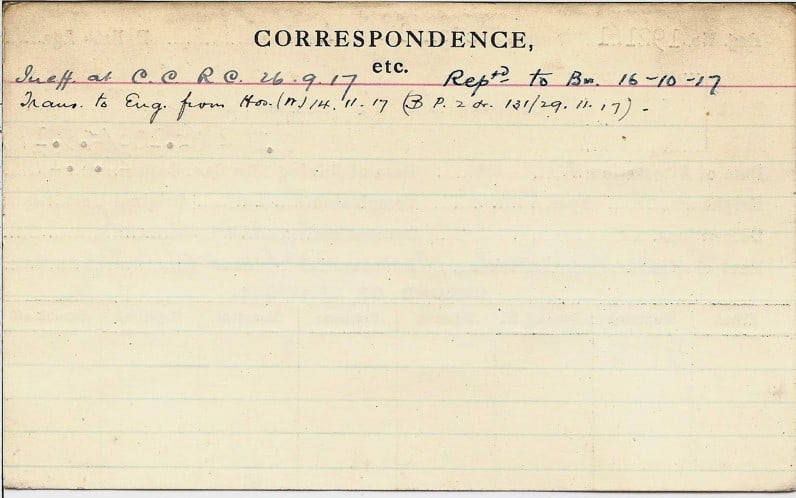 CORRESPONDENCE,
etc.
Ineff. at C. C. R C. 26.9.17 Rep^td to Bn. 16-10-17
Trans. to Eng. from Hos. 14.11.17 (B P. 2 dr. 131/29.11.17).